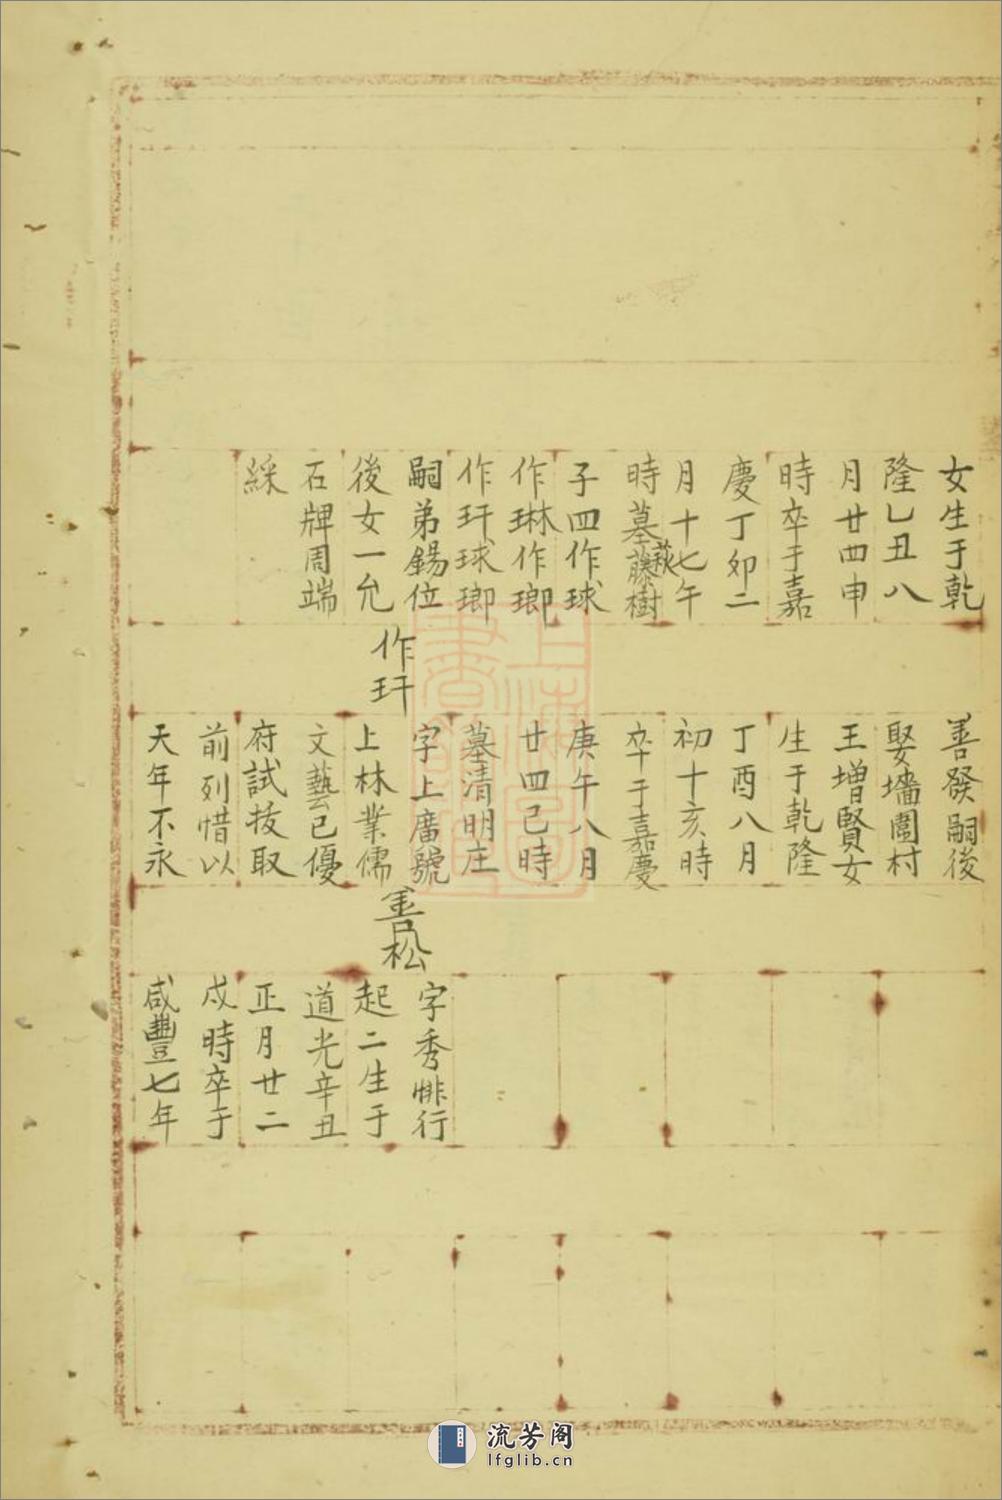 女生于乾
隆乙丑八
月廿四申
時卒于嘉
慶丁卯二
月十七午
時墓藤萩樹
子四作球
作琳作瑯
作玕球瑯
嗣弟錫位
後女一允
石牌周端
綵
作玕
善發嗣後
娶墻圍村
王增賢女
生于乾隆
丁酉八月
初十亥時
卒于嘉慶
庚午八月
廿四己時
墓清明庄
字上廣號
上林業儒
文藝已優
府試拔取
前列惜以
天年不永
善松
字秀悱行
起二生于
道光辛丑
正月廿二
戌時卒于
咸豐七年
上海圖書館藏
流芳阁
lfglib.cn